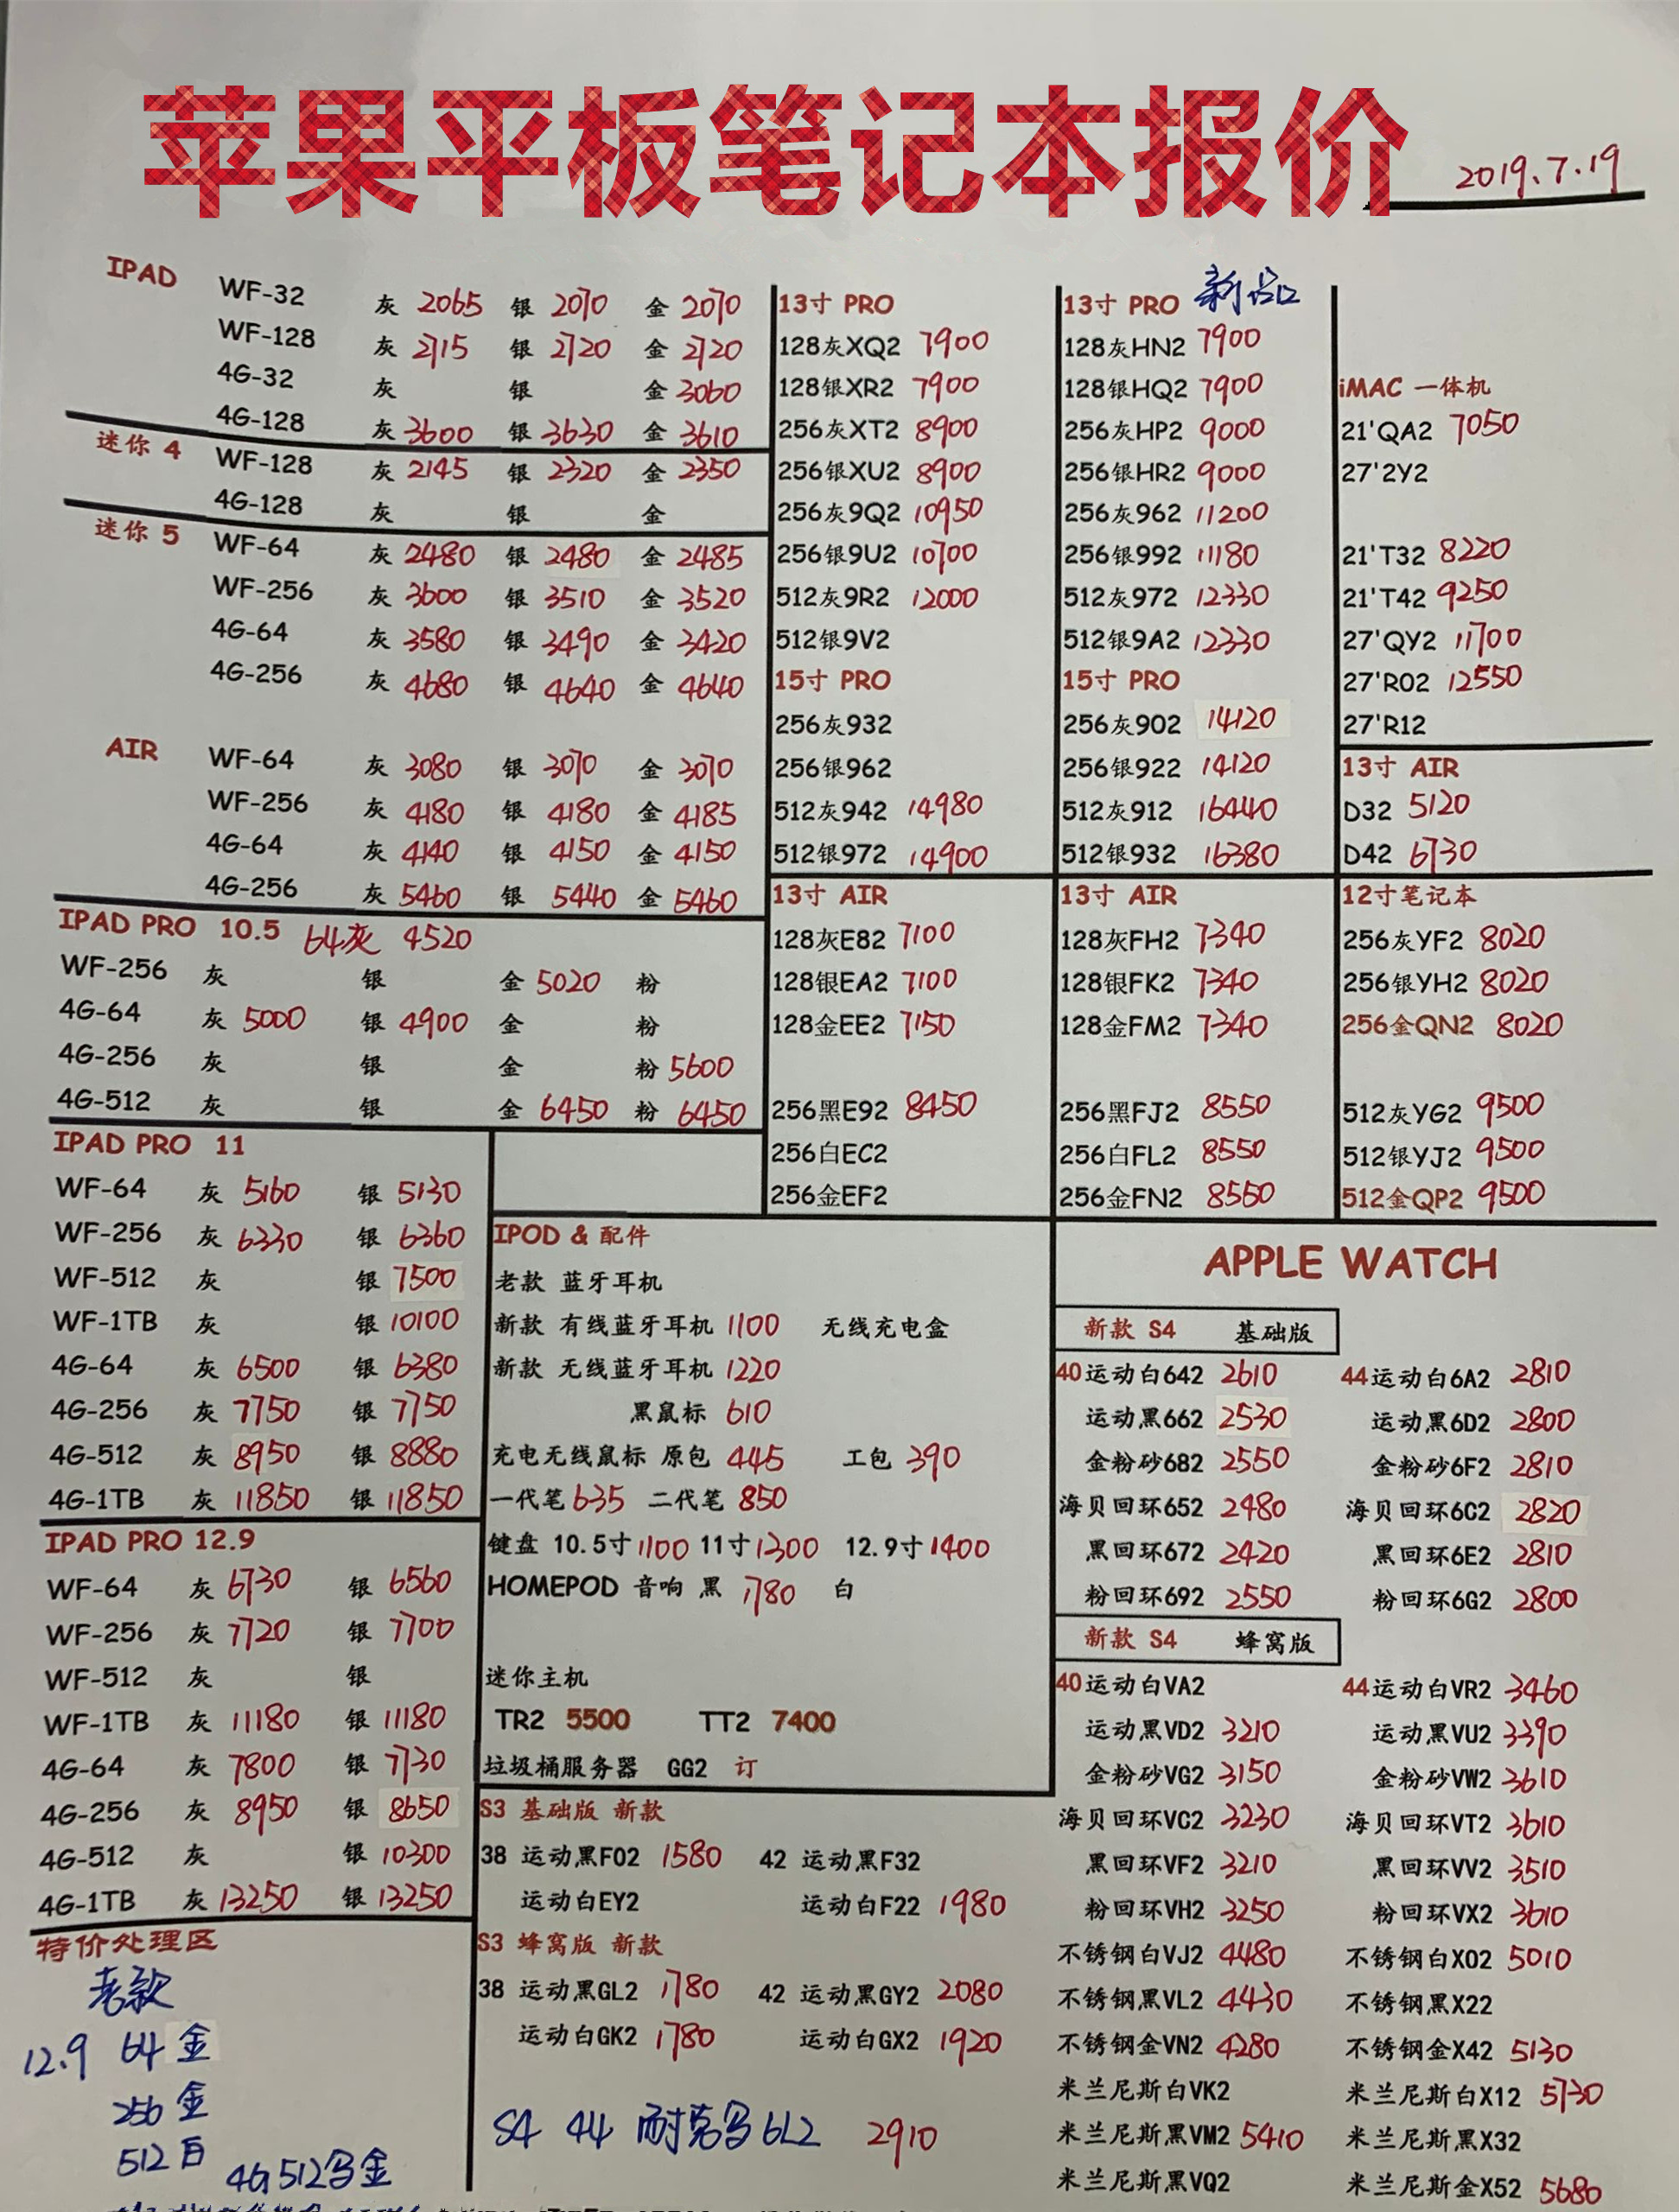 苹果平板笔记本报价
2019.7.19
IPAD
WF-32 灰 2065 银 2070 金 2070
WF-128 灰 2715 银 2720 金 2720
4G-32 灰 银 金 3060
4G-128 灰 3600 银 3630 金 3610
迷你 4
WF-128 灰 2145 银 2320 金 2350
4G-128 灰 银 金
迷你 5
WF-64 灰 2480 银 2480 金 2485
WF-256 灰 3600 银 3510 金 3520
4G-64 灰 3580 银 3490 金 3420
4G-256 灰 4680 银 4640 金 4640
AIR
WF-64 灰 3080 银 3070 金 3070
WF-256 灰 4180 银 4180 金 4185
4G-64 灰 4140 银 4150 金 4150
4G-256 灰 5460 银 5440 金 5460
IPAD PRO 10.5 64灰 4520
WF-256 灰 银 金 5020 粉
4G-64 灰 5000 银 4900 金 粉
4G-256 灰 银 金 粉 5600
4G-512 灰 银 金 6450 粉 6450
IPAD PRO 11
WF-64 灰 5160 银 5130
WF-256 灰 6330 银 6360
WF-512 灰 银 7500
WF-1TB 灰 银 10100
4G-64 灰 6500 银 6380
4G-256 灰 7750 银 7750
4G-512 灰 8950 银 8880
4G-1TB 灰 11850 银 11850
IPAD PRO 12.9
WF-64 灰 6730 银 6560
WF-256 灰 7720 银 7700
WF-512 灰 银
WF-1TB 灰 11180 银 11180
4G-64 灰 7800 银 7730
4G-256 灰 8950 银 8650
4G-512 灰 银 10300
4G-1TB 灰 13250 银 13250
特价处理区
老款
12.9 64 金
256 金
512 白
4G 512 金
13寸 PRO
128灰XQ2 7900
128银XR2 7900
256灰XT2 8900
256银XU2 8900
256灰9Q2 10950
256银9U2 10700
512灰9R2 12000
512银9V2
15寸 PRO
256灰932
256银962
512灰942 14980
512银972 14900
13寸 AIR
128灰E82 7100
128银EA2 7100
128金EE2 7150
256黑E92 8450
256白EC2
256金EF2
13寸 PRO 新品
128灰HN2 7900
128银HQ2 7900
256灰HP2 9000
256银HR2 9000
256灰962 11200
256银992 11180
512灰972 12330
512银9A2 12330
15寸 PRO
256灰902 14120
256银922 14120
512灰912 16440
512银932 16380
13寸 AIR
128灰FH2 7340
128银FK2 7340
128金FM2 7340
256黑FJ2 8550
256白FL2 8550
256金FN2 8550
iMAC 一体机
21'QA2 7050
27'2Y2
21'T32 8220
21'T42 9250
27'QY2 11700
27'R02 12550
27'R12
13寸 AIR
D32 5120
D42 6730
12寸笔记本
256灰YF2 8020
256银YH2 8020
256金QN2 8020
512灰YG2 9500
512银YJ2 9500
512金QP2 9500
IPOD & 配件
老款 蓝牙耳机
新款 有线蓝牙耳机 1100 无线充电盒
新款 无线蓝牙耳机 1220
黑鼠标 610
充电无线鼠标 原包 445 工包 390
一代笔 635 二代笔 850
键盘 10.5寸 1100 11寸 1300 12.9寸 1400
HOMEPOD 音响 黑 1780 白
迷你主机
TR2 5500 TT2 7400
垃圾桶服务器 GG2 订
S3 基础版 新款
38 运动黑F02 1580 42 运动黑F32
运动白EY2 运动白F22 1980
S3 蜂窝版 新款
38 运动黑GL2 1780 42 运动黑GY2 2080
运动白GK2 1780 运动白GX2 1920
S4 44 耐克 6L2 2910
APPLE WATCH
新款 S4 基础版
40运动白642 2610 44运动白6A2 2810
运动黑662 2530 运动黑6D2 2800
金粉砂682 2550 金粉砂6F2 2810
海贝回环652 2480 海贝回环6C2 2820
黑回环672 2420 黑回环6E2 2810
粉回环692 2550 粉回环6G2 2800
新款 S4 蜂窝版
40运动白VA2 44运动白VR2 3460
运动黑VD2 3210 运动黑VU2 3390
金粉砂VG2 3150 金粉砂VW2 3610
海贝回环VC2 3230 海贝回环VT2 3610
黑回环VF2 3210 黑回环VV2 3510
粉回环VH2 3250 粉回环VX2 3610
不锈钢白VJ2 4480 不锈钢白X02 5010
不锈钢黑VL2 4430 不锈钢黑X22
不锈钢金VN2 4280 不锈钢金X42 5130
米兰尼斯白VK2 米兰尼斯白X12 5730
米兰尼斯黑VM2 5410 米兰尼斯黑X32
米兰尼斯黑VQ2 米兰尼斯金X52 5680